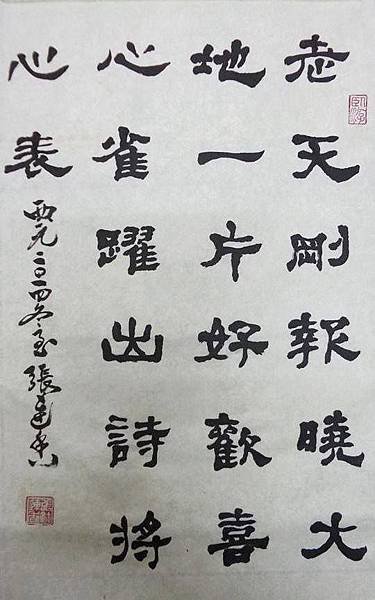 老天剛報曉大
地一片好歡喜
心雀躍出詩將
心表
西元二〇一四冬至張